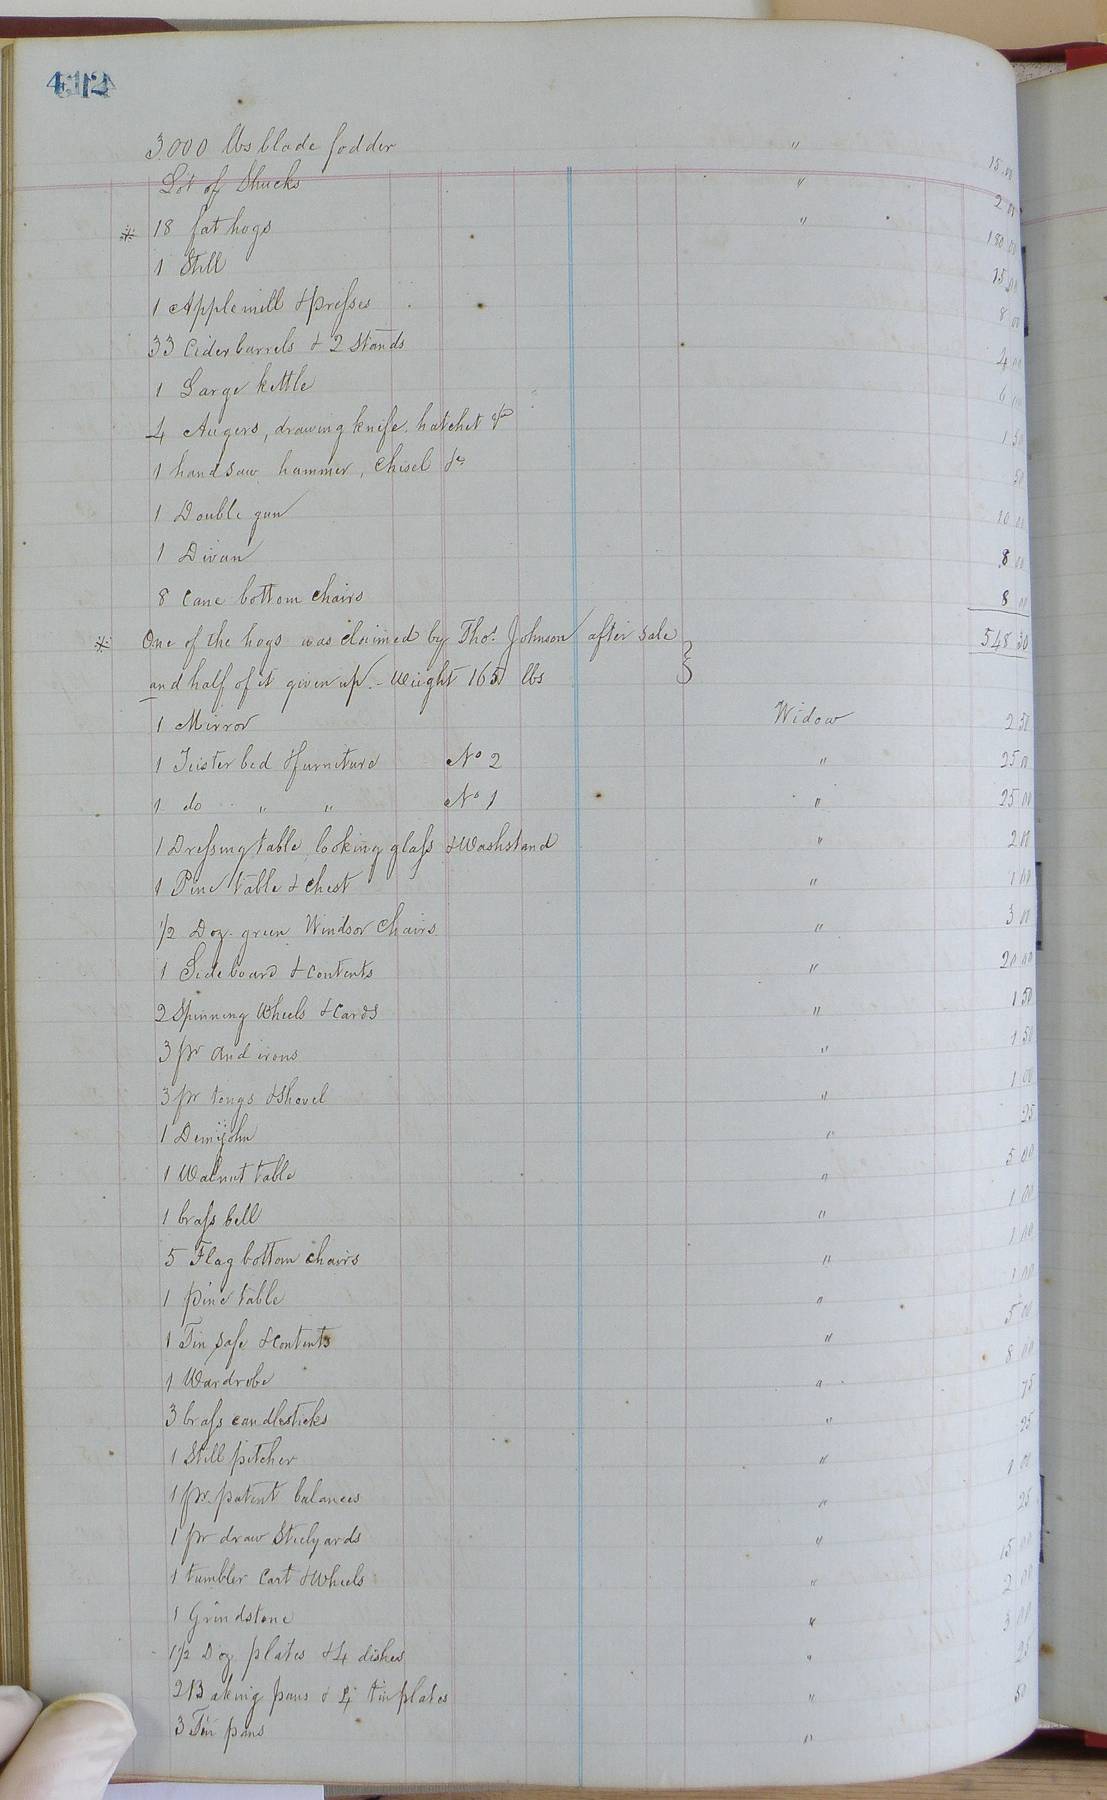 3.000 lbs blade fodder " 15.00
Lot of Shucks " 2 00
* 18 fat hogs " 180 00
1 Still 15 00
1 Apple mill & presses 8 00
33 Cider barrels & 2 Stands 4 00
1 Large kettle 6 00
4 Augers, drawing knife, hatchet &c 1 50
1 hand saw, hammer, Chisel &c 50
1 Double gun 10 00
1 Divan 8 00
8 Cane bottom chairs 8 00
* One of the hogs was claimed by Thos. Johnson after sale 548 50
and half of it given up. - Weight 165 lbs
1 Mirror Widow 2 50
1 Teister bed & furniture No 2 " 25 00
1 do " " No 1 " 25 00
1 Dressing table, looking glass & Washstand " 2 00
1 Pine table & chest " 1 00
1/2 Doz. green Windsor Chairs " 3 00
1 Sideboard & contents " 20 00
2 Spinning Wheels & Cards " 1 50
3 pr And irons " 1 50
3 pr tongs & Shovel " 1 00
1 Demijohn " 25
1 Walnut table " 5 00
1 brass bell " 1 00
5 Flag bottom chairs " 1 00
1 pine table " 1 00
1 Tin safe & contents " 5 00
1 Wardrobe " 8 00
3 brass candlesticks " 75
1 Still pitcher " 25
1 pr. patent balances " 1 00
1 pr draw Steelyards " 25
1 tumbler Cart & Wheels " 15 00
1 Grindstone " 2 00
1 1/2 Doz plates & 4 dishes " 3 00
2 Baking pans & 4 tin plates " 25
3 Tin pans " 50